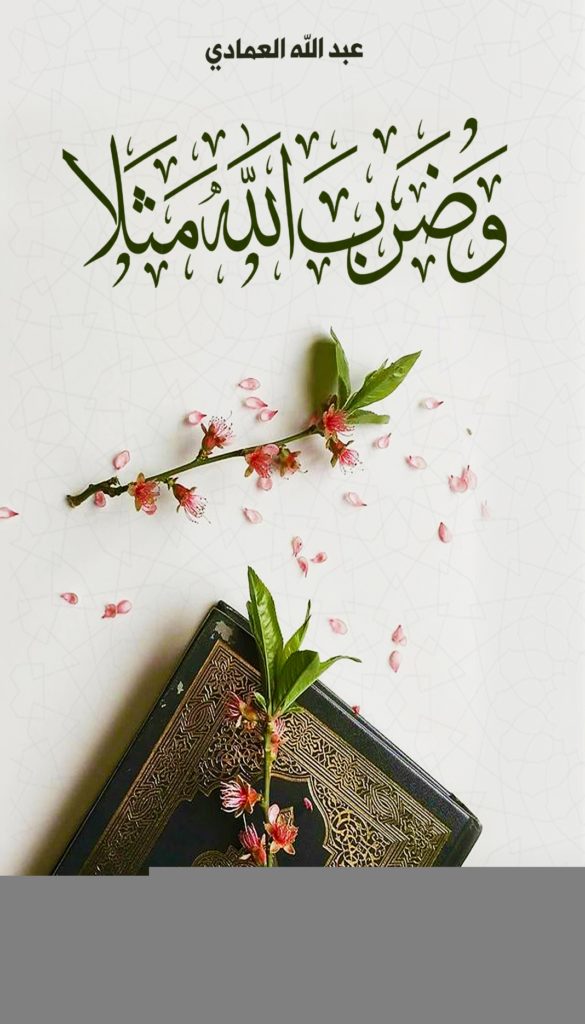 عبد الله العمادي
وَضَرَبَ اللَّهُ مَثَلًا